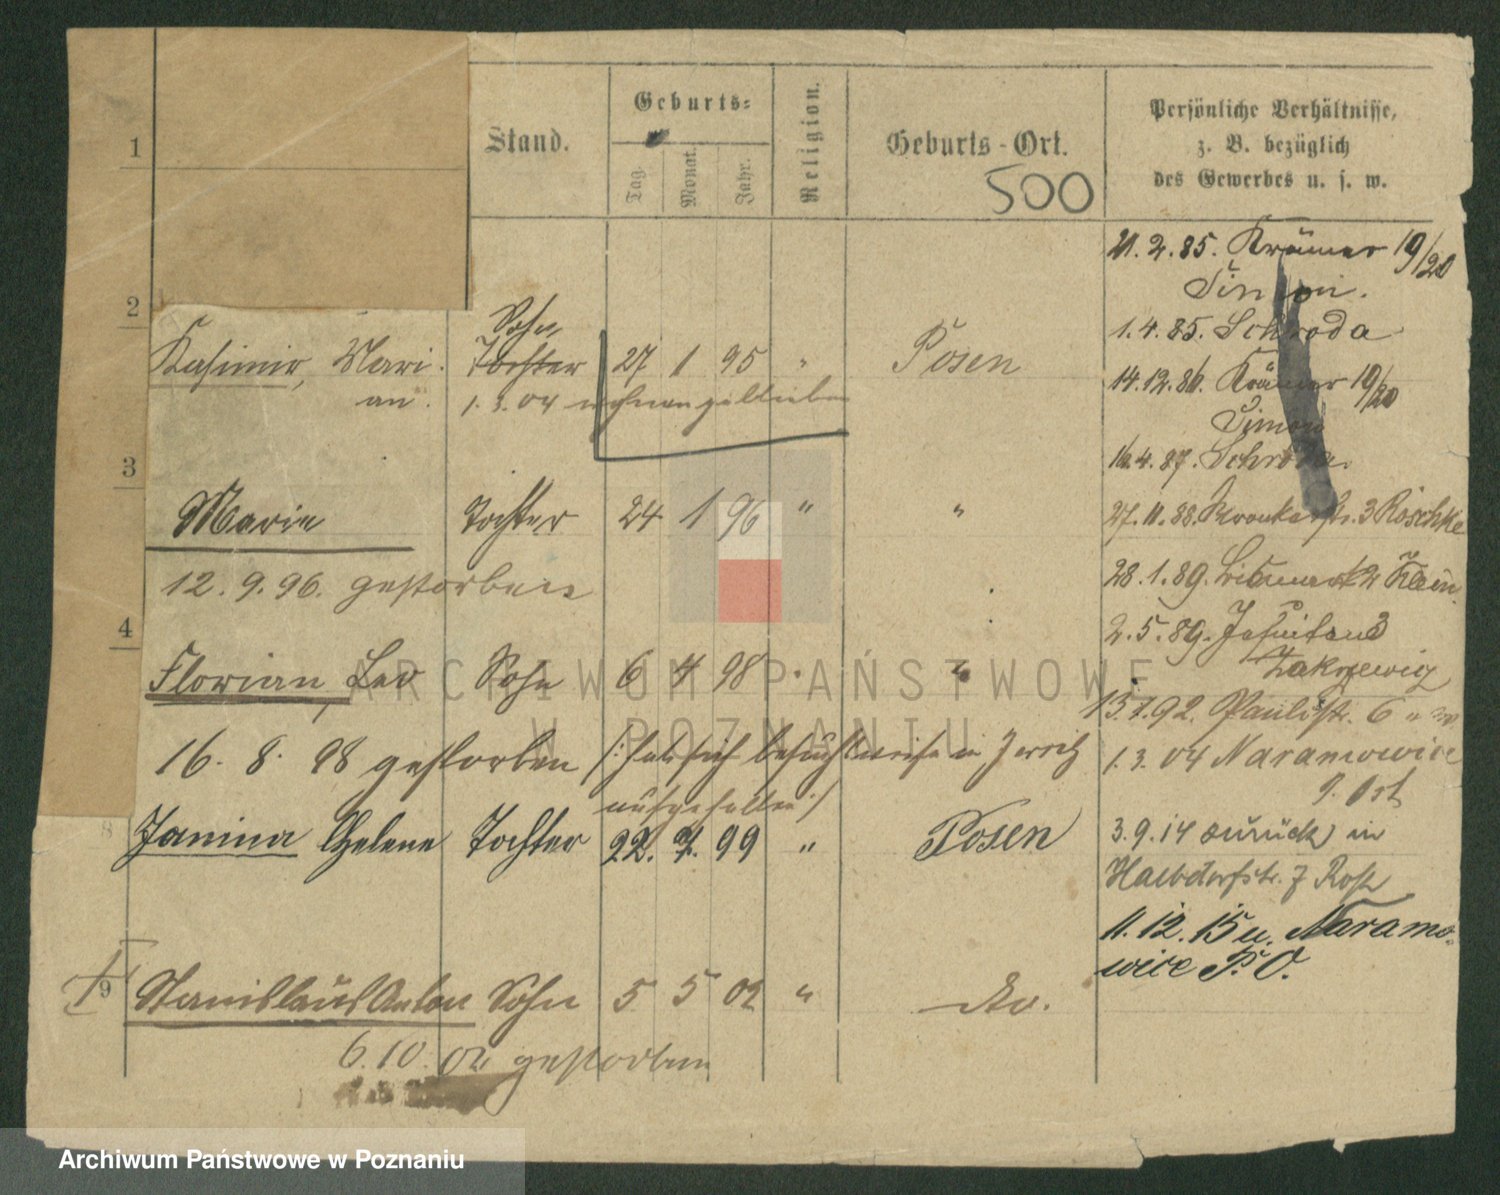 Stand.
Geburts=
Tag.
Monat.
Jahr.
Religion.
Geburts-Ort.
500
Persönliche Verhältnisse,
z. B. bezüglich
des Gewerbes u. s. w.
1
2
3
4
21. 2. 85. Krämer 19/20
Simon.
1. 4. 85. Schroda
14. 12. 86. Krämer 19/20
Simon
16. 4. 87. Schroda.
27. 11. 88. 3 Röschke
28. 1. 89. Bismark 2 Klein
2. 5. 89. Jesuitens 3
Zakrzewicz
13. 7. 92. Paulistr. 6
1. 3. 04 Naramowice
P. Ost
3. 9. 14 zurück in
Halbdorfstr. 7
11. 12. 15 n. Naramo-
wice P. O.
Kasimir, Mari- Sohn Tochter 27 1 95 " Posen
an. 1. 3. 04 wohnen geblieben
Marie Tochter 24 1 96 " "
12. 9. 96. gestorben
Florian, Leo Sohn 6 4 98 " "
16. 8. 98 gestorben /: hat sich besuchsweise in Jersitz
aufgehalten :/
8 Janina Helene Tochter 22. 4. 99 " Posen
9 Stanislaus Anton Sohn 5 5 02 " do.
6. 10. 02 gestorben
ARCHIWUM PAŃSTWOWE
W POZNANIU
Archiwum Państwowe w Poznaniu